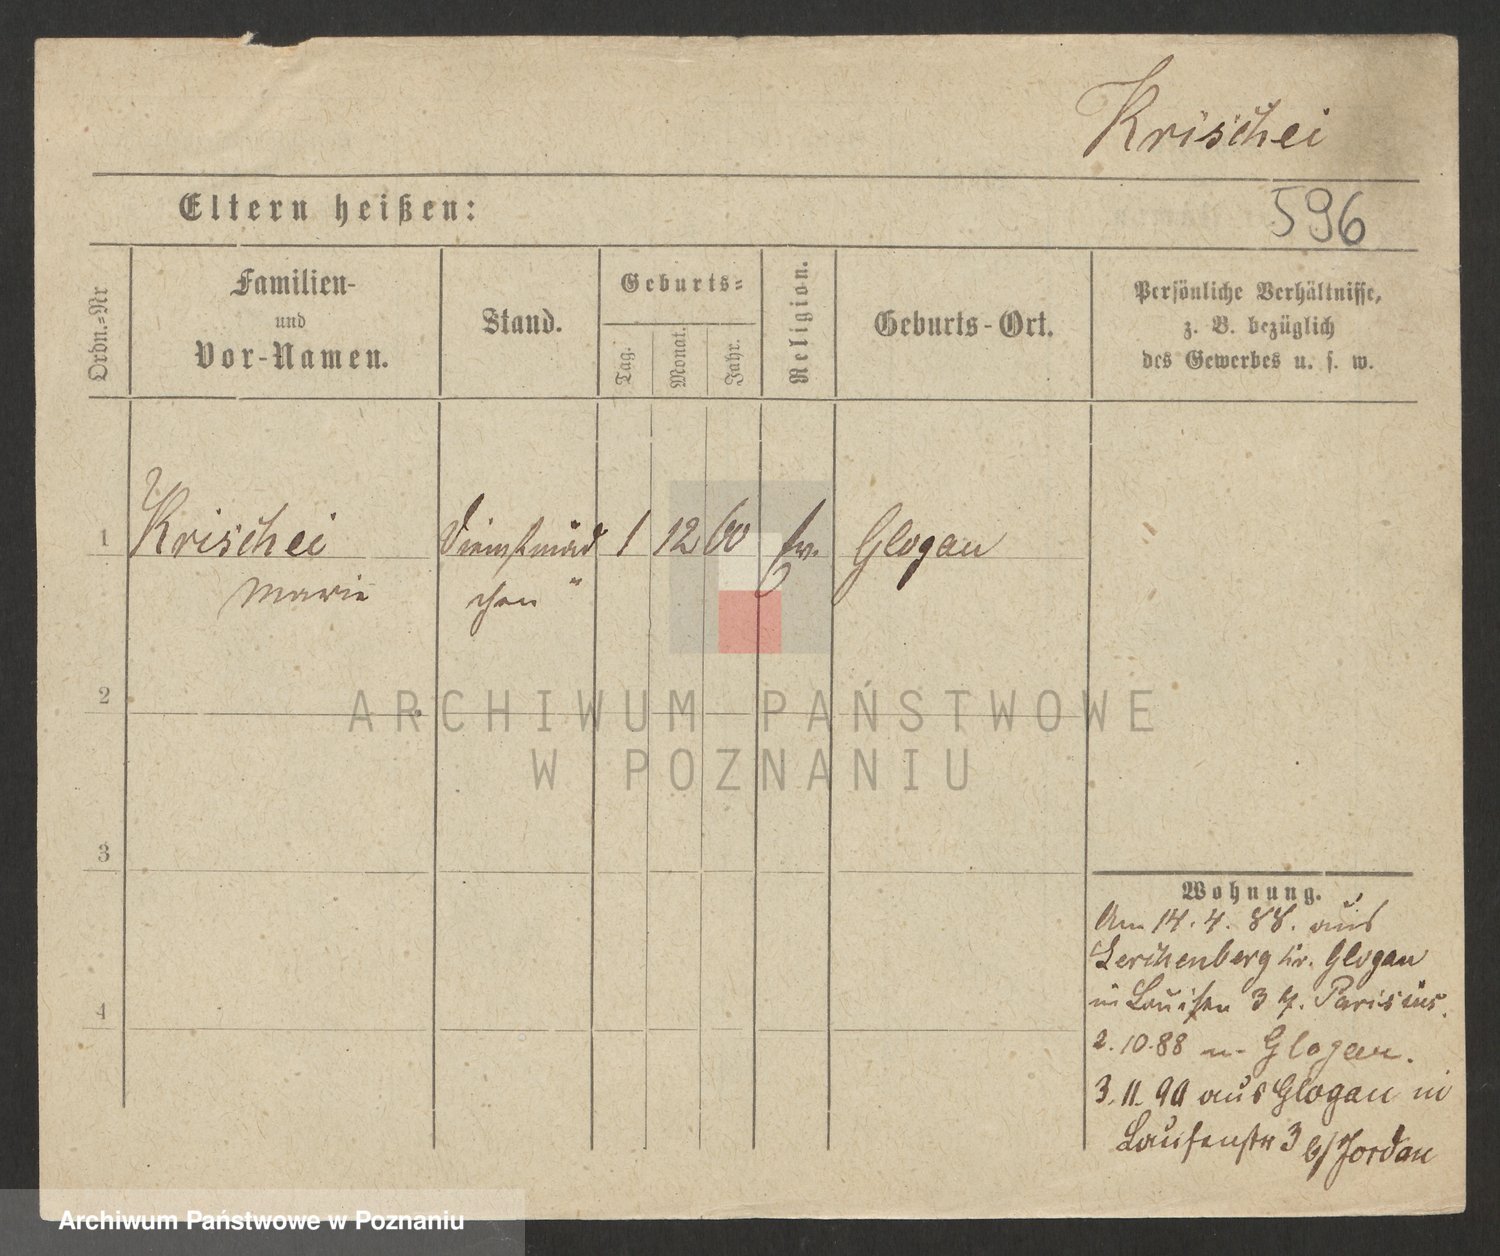 Krischei
Eltern heißen:
596
Ordn.=Nr
Familien-
und
Vor-Namen.
Stand.
Geburts=
Tag.
Monat.
Jahr.
Religion.
Geburts-Ort.
Persönliche Verhältnisse,
z. B. bezüglich
des Gewerbes u. s. w.
1 Krischei Dienstmäd 1 12 60 Glogau
Marie chen "
2
ARCHIWUM PAŃSTWOWE
W POZNANIU
3
Wohnung.
Am 14. 4. 88. aus
Lerchenberg Kr. Glogau
in Louisen 3 Parisius.
4
2. 10. 88 n. Glogau.
3. 11. 90 aus Glogau in
Louisenstr 3 b/Jordan
Archiwum Państwowe w Poznaniu